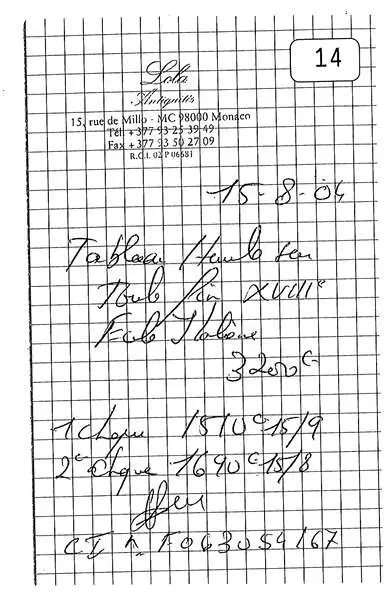 14
Lola
Antiquités
15, rue de Millo - MC 98000 Monaco
Tél +377 93 25 39 49
Fax +377 93 50 27 09
R.C.I. 02 P 06681
15-8-04
Tableau Huile sur
Toile fin XVIIIe
Ecole Italienne
3200€
1 Chque 1510€ 15/9
2e Chque 1690€ 15/8
CI n° F063054167